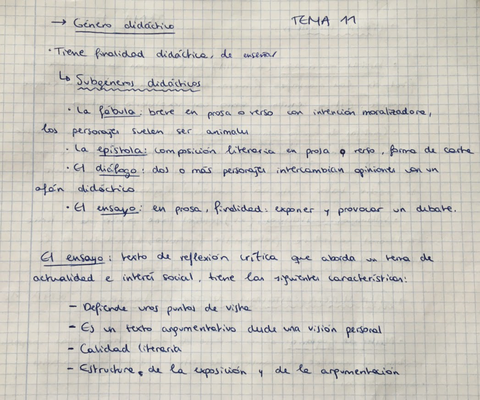 → Género didáctico TEMA 11
· Tiene finalidad didáctica, de enseñar
↳ Subgéneros didácticos
· La fábula: breve en prosa o verso con intención moralizadora,
los personajes suelen ser animales
· La epístola: composición literaria en prosa o verso, forma de carta
· El diálogo: dos o más personajes intercambian opiniones con un
afán didáctico
· El ensayo: en prosa, finalidad: exponer y provocar un debate.
El ensayo: texto de reflexión crítica que aborda un tema de
actualidad e interés social, tiene las siguientes características:
- Defiende unos puntos de vista
- Es un texto argumentativo desde una visión personal
- Calidad literaria
- Estructura de la exposición y de la argumentación